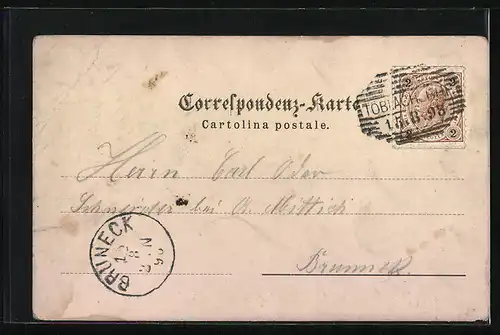 Correspondenz-Karte
Cartolina postale.
TOBLACH
2
Herrn Carl Oder
bei A. Mittich
Bruneck
BRUNECK